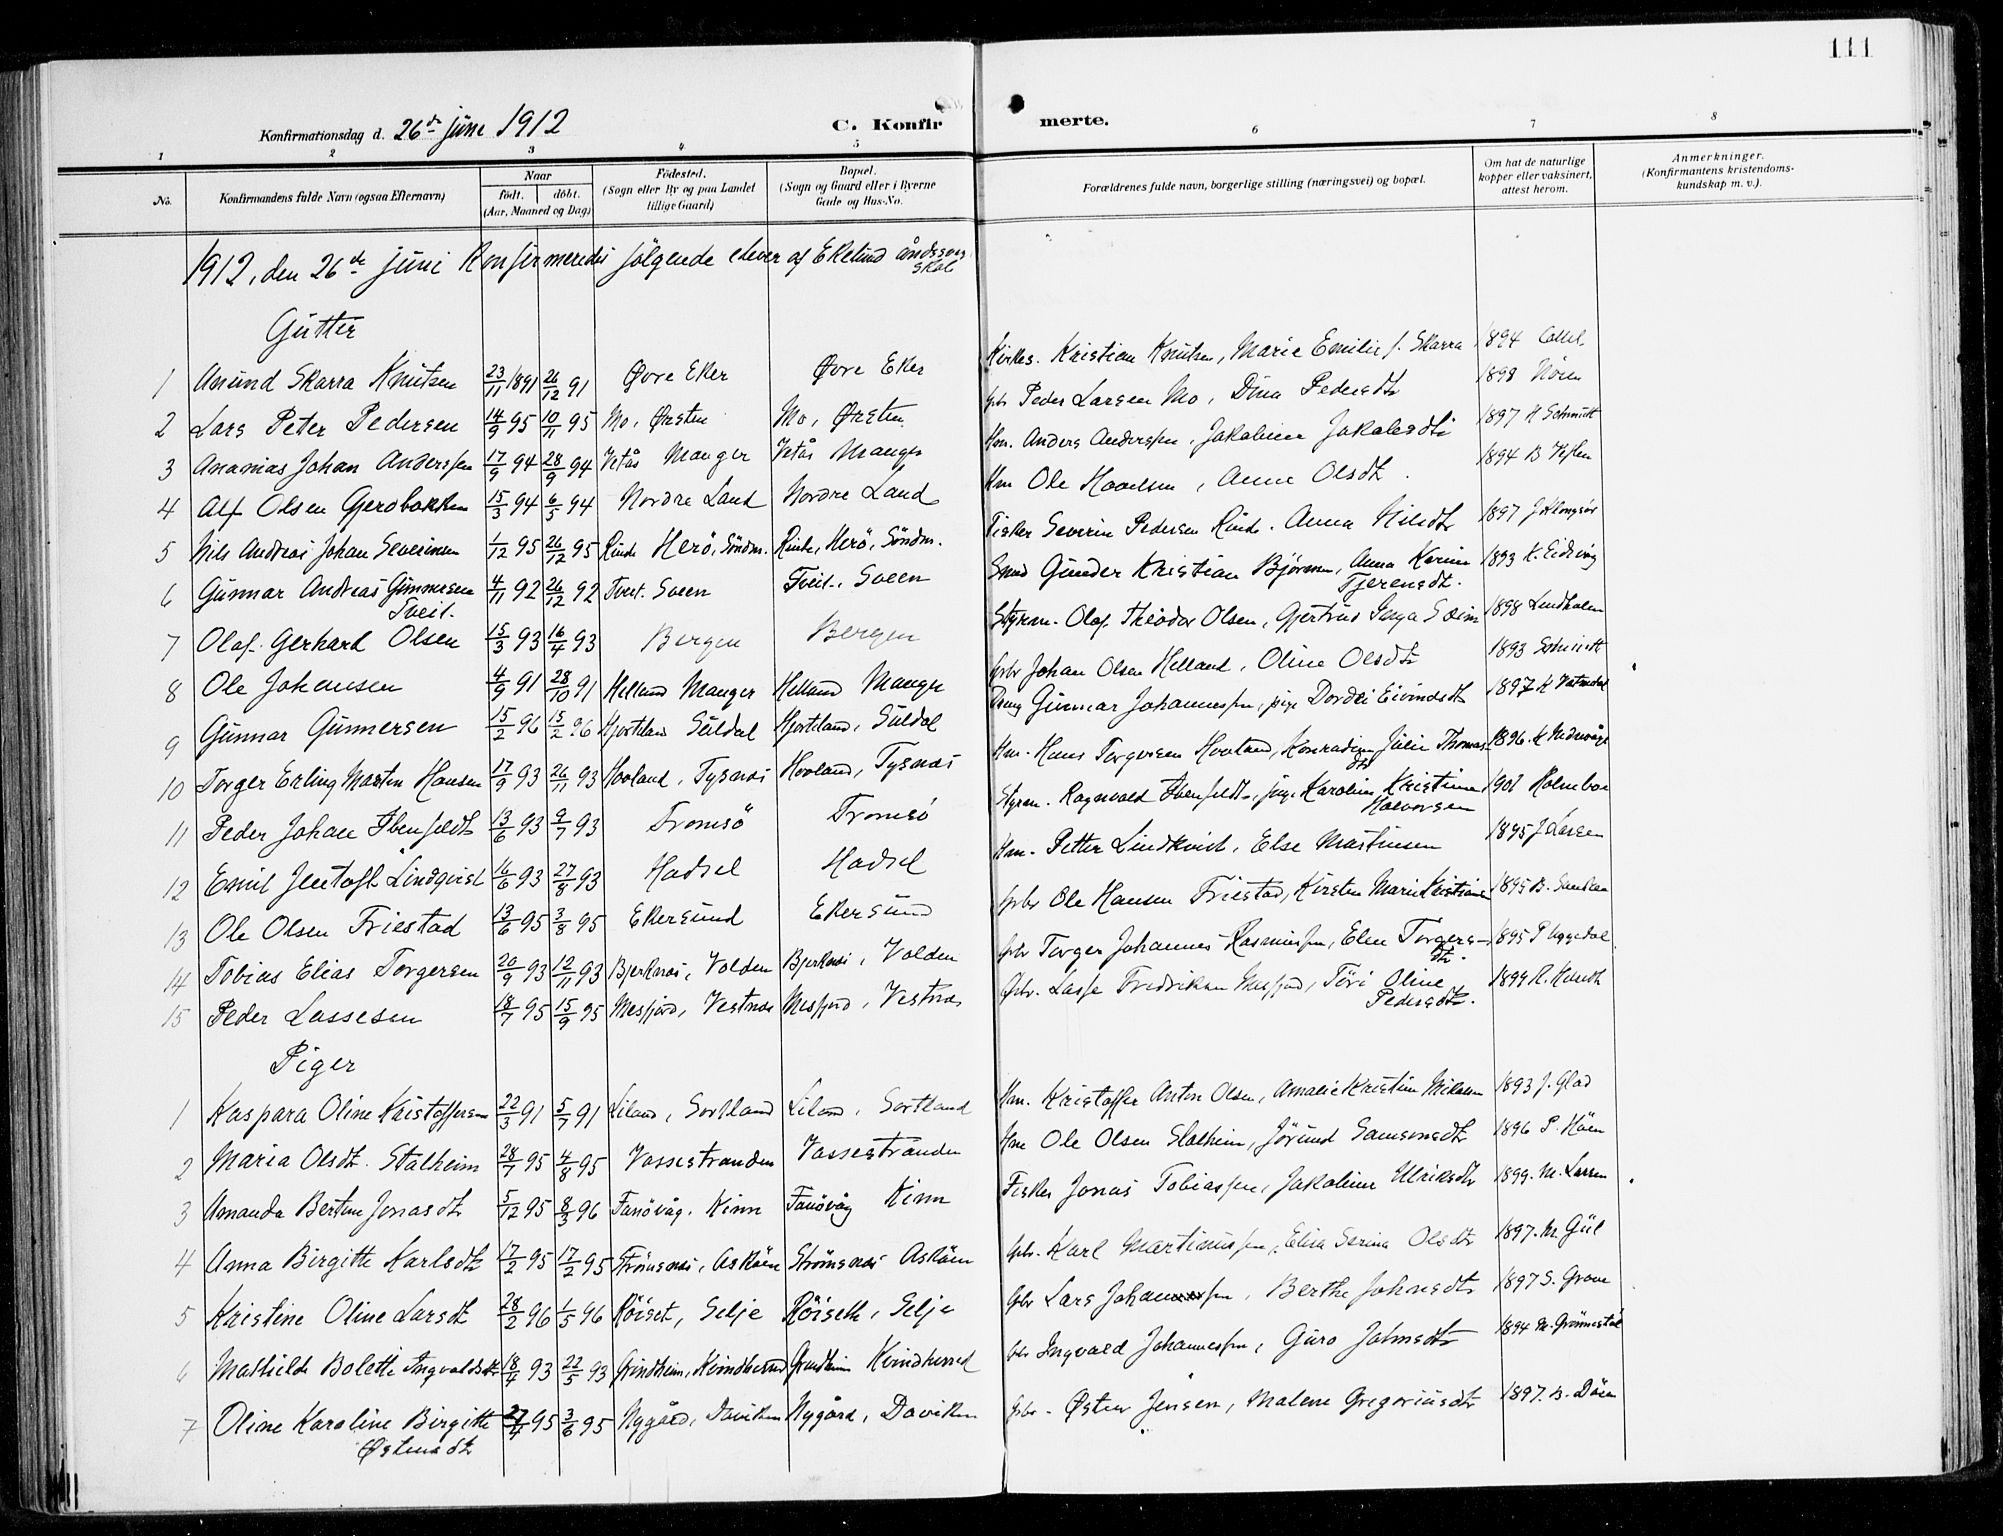 111
Konfirmationsdag d. 26de juni 1912 C. Konfir merte.
1 2 3 4 5 6 7 8
No. Konfirmandens fulde Navn (ogsaa Efternavn) Naar født. døbt. (Aar, Maaned og Dag) Fødested. (Sogn eller By og paa Landet tillige Gaard) Bopæl. (Sogn og Gaard eller i Byerne Gade og Hus-No. Forældrenes fulde navn, borgerlige stilling (næringsvei) og bopæl. Om hat de naturlige kopper eller vaksinert, attest herom. Anmerkninger. (Konfirmantens kristendoms-kundskap m. v.).
1912, den 26de juni Konfirmeredes følgende elever af Ekelund åndssvag skol
Gutter
1 Anund Skarra Knutsen 23/11 1891 26/12 91 Øvre Eker Øvre Eker Kirkes. Kristian Knutsen, Marie Emilie f. Skarra 1894
2 Lars Peter Pedersen 14/9 95 10/11 95 Mo, Ørsten Mo, Ørsten Gbr Peder Larsen Mo, Dina Pedersdtr 1898
3 Ananias Johan Anderssen 17/9 94 28/9 94 Vetås Manger Vetås Manger Hm. Anders Anderssen, Jakobine Jakobsdtr 1897 H Schmidt
4 Alf Olsen Gjerdbakken 15/3 94 6/5 94 Nordre Land Nordre Land Hm Ole Hovelsen, Anne Olsdtr 1894 B
5 Nils Andreas Johan Severinsen 1/12 95 26/12 95 Rinde Herø, Søndm. Rinde, Herø, Søndm. Fisker Severin Pedersen Rinde. Anna Nilsdtr 1897
6 Gunnar Andreas Gunnersen Tveit. 4/11 92 26/12 92 Tveit. Sveen Tveit, Sveen Smed Gunder Kristian Bjørnsen, Anna Karine Tjerensdtr. 1893 K. Eidsvåg
7 Olaf Gerhard Olsen 15/3 93 16/4 93 Bergen Bergen Styrm. Olaf Theodor Olsen, Gjertrud Seim 1898 Lindholm
8 Ole Johansen 4/9 91 28/10 91 Helland Manger Helland Manger Gbr Johan Olsen Helland, Oline Olsdtr 1893 Schmidt
9 Gunnar Gunnersen 15/2 96 15/2 96 Hjorteland Suldal Hjorteland, Suldal Dreng Gunnar Johannessen, pige Dordei Eivindsdtr 1897 K Vatnedal
10 Torger Erling Martin Hansen 17/9 93 26/11 93 Hovland, Tysnes Hovland, Tysnes Hm. Hans Torgersen Hovland, Konradine Julie Thomasdtr 1896. K
11 Peder Johan Ibenfeldt 13/6 93 9/7 93 Tromsø Tromsø Styrm. Ragnvald Ibenfeldt, pige Karoline Kristine Halvorsen 1901 Holmboe
12 Emil Lindqvist 16/6 93 27/8 93 Hadsel Hadsel Hm. Petter Lindkvist, Else Martinsen 1895 J Larsen
13 Ole Olsen Friestad 13/6 95 3/8 95 Ekersund Ekersund Gbr Ole Hansen Friestad, Kirsten Marie Kristiansen 1895 B.
14 Tobias Elias Torgersen 20/9 93 12/11 93 Bjerknes, Volden Bjerknes, Volden Gbr Torger Johannes Rasmussen, Elen Torgersdtr. 1895 P Uggedal
15 Peder Lassesen 18/7 95 15/9 95 Mesfjord, Vestnes Mesfjord, Vestnes Gbr. Lasse Fredriksen Mesfjord, Tøri Oline Pedersdtr. 1899 R.
Piger
1 Kaspara Oline Kristoffersen 22/3 91 5/7 91 Liland, Sortland Liland, Sortland Hm. Kristoffer Anton Olsen, Amalie Kristine Nilsen 1893 J. Glad
2 Maria Olsdtr. Stalheim 28/7 95 4/8 95 Vossestranden Vossestranden Hm Ole Olsen Stalheim, Jørund Samsonsdtr 1896 P. Høen
3 Amanda Bertine Jonasdtr 5/12 95 8/3 96 Fanøvåg. Kinn Fanøvåg Kinn Fisker Jonas Tobiassen, Jakobine Ulriksdtr 1899. M. Larsen
4 Anna Birgitte Karlsdtr 17/2 95 17/2 95 Strømsnes, Askøen Strømsnes Askøen Gbr. Karl Martinussen, Elisa Serina Olsdtr 1897. M. Giil
5 Kristine Oline Larsdtr 28/2 96 1/5 96 Røiset, Selje Røiseth, Selje Gbr Lars Johannessen, Berthe Johnsdtr 1897 S. Grove
6 Mathilde Bolette Ingvaldsdtr 18/4 93 22/5 93 Grindheim, Kvindherred Grindheim Kvindherred Gbr Ingvald Johannessen, Guro Johnsdtr 1894 M. Grønnestøl
7 Oline Karoline Birgitte Østensdtr 27/4 95 3/6 95 Nygård, Daviken Nygård, Daviken Gbr. Østen Jensen, Malene Gregoriusdtr 1897. B. Døsen